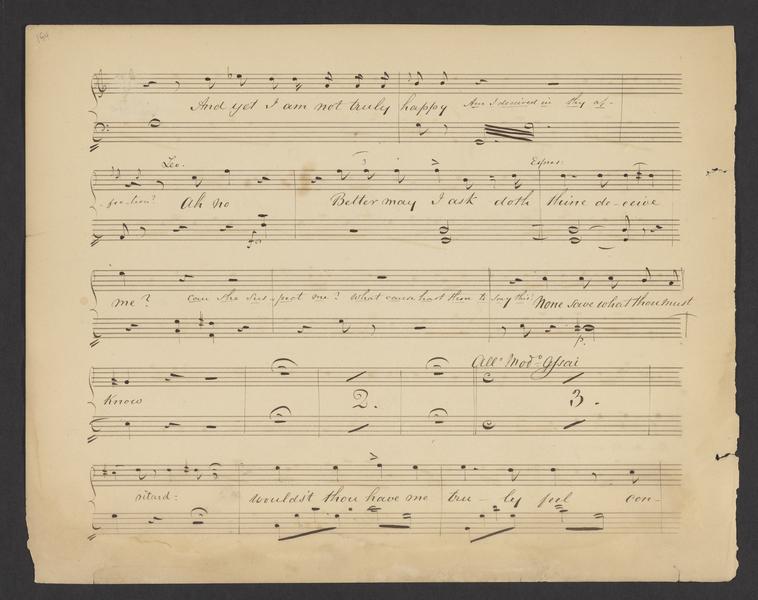 194
And yet I am not truly happy Am I deceived in thy af-
Leo. Espres:
-fec-tion? Ah no Better may I ask doth thine de-ceive
me? can she sus-pect me? What cause hast thou to say this? None save what thou must
p.
All.° Mod.° Assai
Know 2. 3.
ritard: Wouldst thou have me tru-ly feel con-